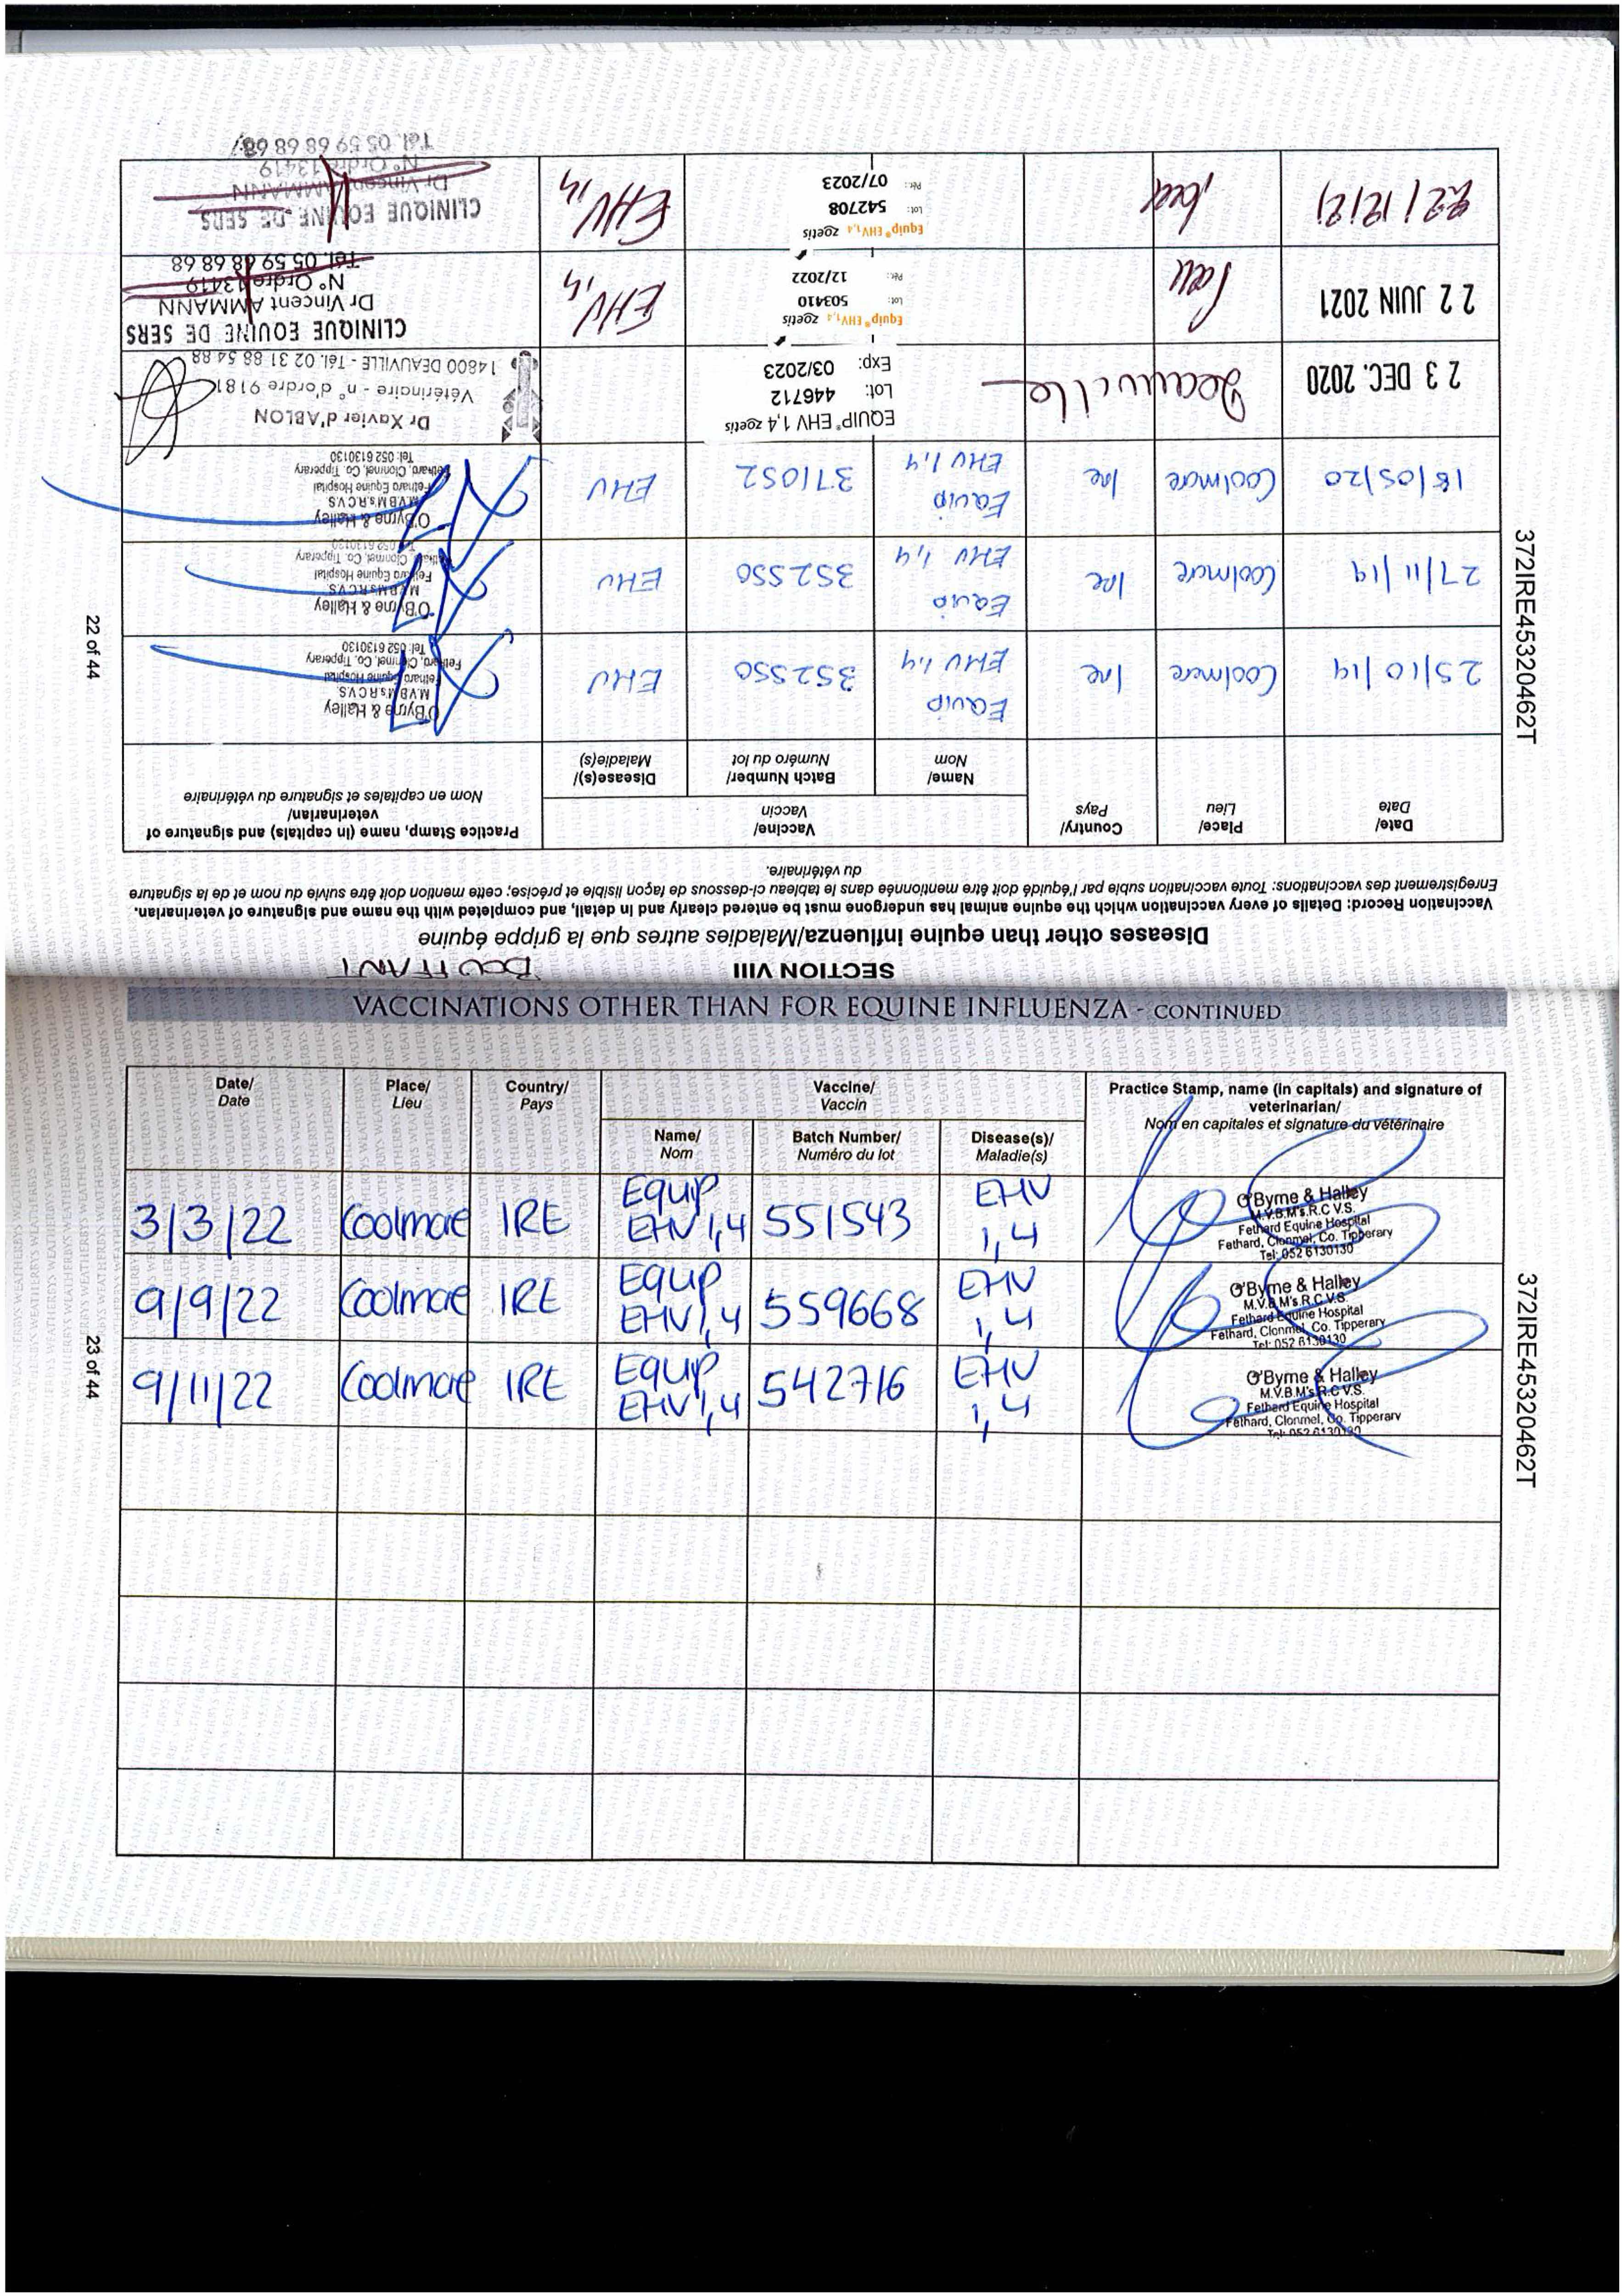 SECTION VIII
BOUFFANT
Diseases other than equine influenza/Maladies autres que la grippe équine
Vaccination Record: Details of every vaccination which the equine animal has undergone must be entered clearly and in detail, and completed with the name and signature of veterinarian.
Enregistrement des vaccinations: Toute vaccination subie par l'équidé doit être mentionnée dans le tableau ci-dessous de façon lisible et précise; cette mention doit être suivie du nom et de la signature
du vétérinaire.
Date/
Date
Place/
Lieu
Country/
Pays
Vaccine/
Vaccin
Name/
Nom
Batch Number/
Numéro du lot
Disease(s)/
Maladie(s)
Practice Stamp, name (in capitals) and signature of
veterinarian/
Nom en capitales et signature du vétérinaire
25/10/19 Coolmore Ire Equip
EHV 1,4 352550 EHV
O'Byrne & Halley
M.V.B M's R.C.V.S.
Fethard Equine Hospital
Fethard, Clonmel, Co. Tipperary
Tel: 052 6130130
27/11/19 Coolmore Ire Equip
EHV 1,4 352550 EHV
O'Byrne & Halley
M.V.B M's R.C.V.S.
Fethard Equine Hospital
Fethard, Clonmel, Co. Tipperary
Tel: 052 6130130
18/05/20 Coolmore Ire Equip
EHV 1,4 371052 EHV
O'Byrne & Halley
M.V.B M's R.C.V.S.
Fethard Equine Hospital
Fethard, Clonmel, Co. Tipperary
Tel: 052 6130130
23 DEC. 2020 Deauville
EQUIP® EHV 1,4 zoetis
Lot: 446712
Exp: 03/2023
Dr Xavier d'ABLON
Vétérinaire - n° d'ordre 9181
14800 DEAUVILLE - Tél. 02 31 88 54 88
22 JUIN 2021 Pau
Equip® EHV1,4 zoetis
Lot: 503410
Pér.: 12/2022
EHV1,4
CLINIQUE EQUINE DE SERS
Dr Vincent AMMANN
N° Ordre 13419
Tél. 05 59 68 68 68
22/12/21 Pau
Equip® EHV1,4 zoetis
Lot: 542708
Pér.: 07/2023
EHV1,4
CLINIQUE EQUINE DE SERS
Dr Vincent AMMANN
N° Ordre 13419
Tél. 05 59 68 68 68
22 of 44
372IRE45320462T
VACCINATIONS OTHER THAN FOR EQUINE INFLUENZA - CONTINUED
Date/
Date
Place/
Lieu
Country/
Pays
Vaccine/
Vaccin
Name/
Nom
Batch Number/
Numéro du lot
Disease(s)/
Maladie(s)
Practice Stamp, name (in capitals) and signature of
veterinarian/
Nom en capitales et signature du vétérinaire
3/3/22 Coolmore IRE Equip
EHV 1,4 551543 EHV
1,4
O'Byrne & Halley
M.V.B.M's.R.C V.S.
Fethard Equine Hospital
Fethard, Clonmel, Co. Tipperary
Tel: 052 6130130
9/9/22 Coolmore IRE Equip
EHV 1,4 559668 EHV
1,4
O'Byrne & Halley
M.V.B M's.R.C.V.S.
Fethard Equine Hospital
Fethard, Clonmel, Co. Tipperary
Tel: 052 6130130
9/11/22 Coolmore IRE Equip
EHV 1,4 542716 EHV
1,4
O'Byrne & Halley
M.V.B.M's.R.C V.S.
Fethard Equine Hospital
Fethard, Clonmel, Co. Tipperary
Tel: 052 6130130
23 of 44
372IRE45320462T